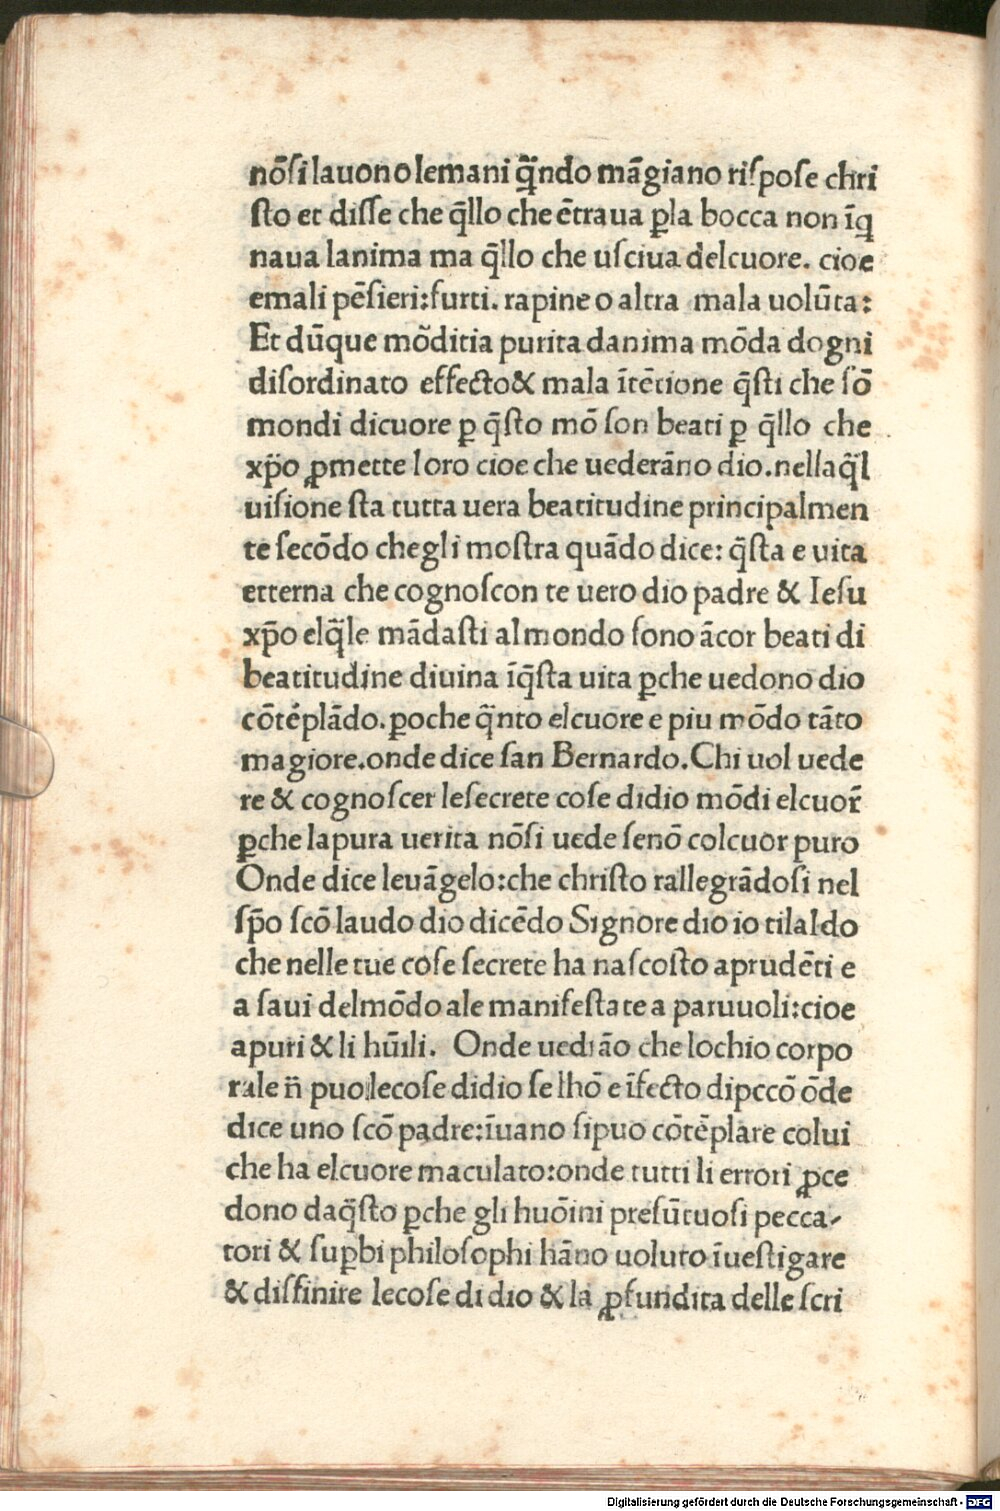 nō ſi lauono le mani q̄ndo māgiano riſpoſe chri
ſto et diſſe che q̄llo che ētraua ꝑla bocca non īq
naua lanima ma q̄llo che uſciua delcuore. cioe
emali pēſieri:furti. rapine o altra mala uolūta:
Et dūque mōditia purita danima mōda dogni
diſordinato effecto & mala ītētione q̄ſti che ſō
mondi dicuore ꝑ q̄ſto mō ſon beati ꝑ q̄llo che
xp̄o ꝓmette loro cioe che uederāno dio.nellaq̄l
uiſione ſta tutta uera beatitudine principalmen
te ſecōdo chegli moſtra quādo dice: q̄ſta e uita
etterna che cognoſcon te uero dio padre & Ieſu
xp̄o elq̄le mādaſti al mondo ſono ācor beati di
beatitudine diuina īq̄ſta uita ꝑche uedono dio
cōtēplādo.ꝑoche q̄nto elcuore e piu mōdo tāto
magiore.onde dice ſan Bernardo.Chi uol uede
re & cognoſcer leſecrete coſe didio mōdi elcuor̄
ꝑche lapura uerita nōſi uede ſenō colcuor puro
Onde dice leuāgelo:che chriſto rallegrādoſi nel
ſp̄o ſcō laudo dio dicēdo Signore dio io tilaldo
che nelle tue coſe ſecrete ha naſcoſto aprudēti e
a ſaui delmōdo ale manifeſtate a paruuoli:cioe
apuri & li hūili. Onde uediāo che lochio corpo
rale n̄ puo lecoſe didio ſe lhō e īfecto dipccō ōde
dice uno ſcō padre:īuano ſipuo cōtēplare colui
che ha elcuore maculato:onde tutti li errori ꝓce
dono daq̄ſto ꝑche gli huōini preſūtuoſi pecca-
tori & ſuꝑbi philoſophi hāno uoluto īueſtigare
& diffinire lecoſe di dio & la ꝓfundita delle ſcri
Digitalisierung gefördert durch die Deutsche Forschungsgemeinschaft - DFG